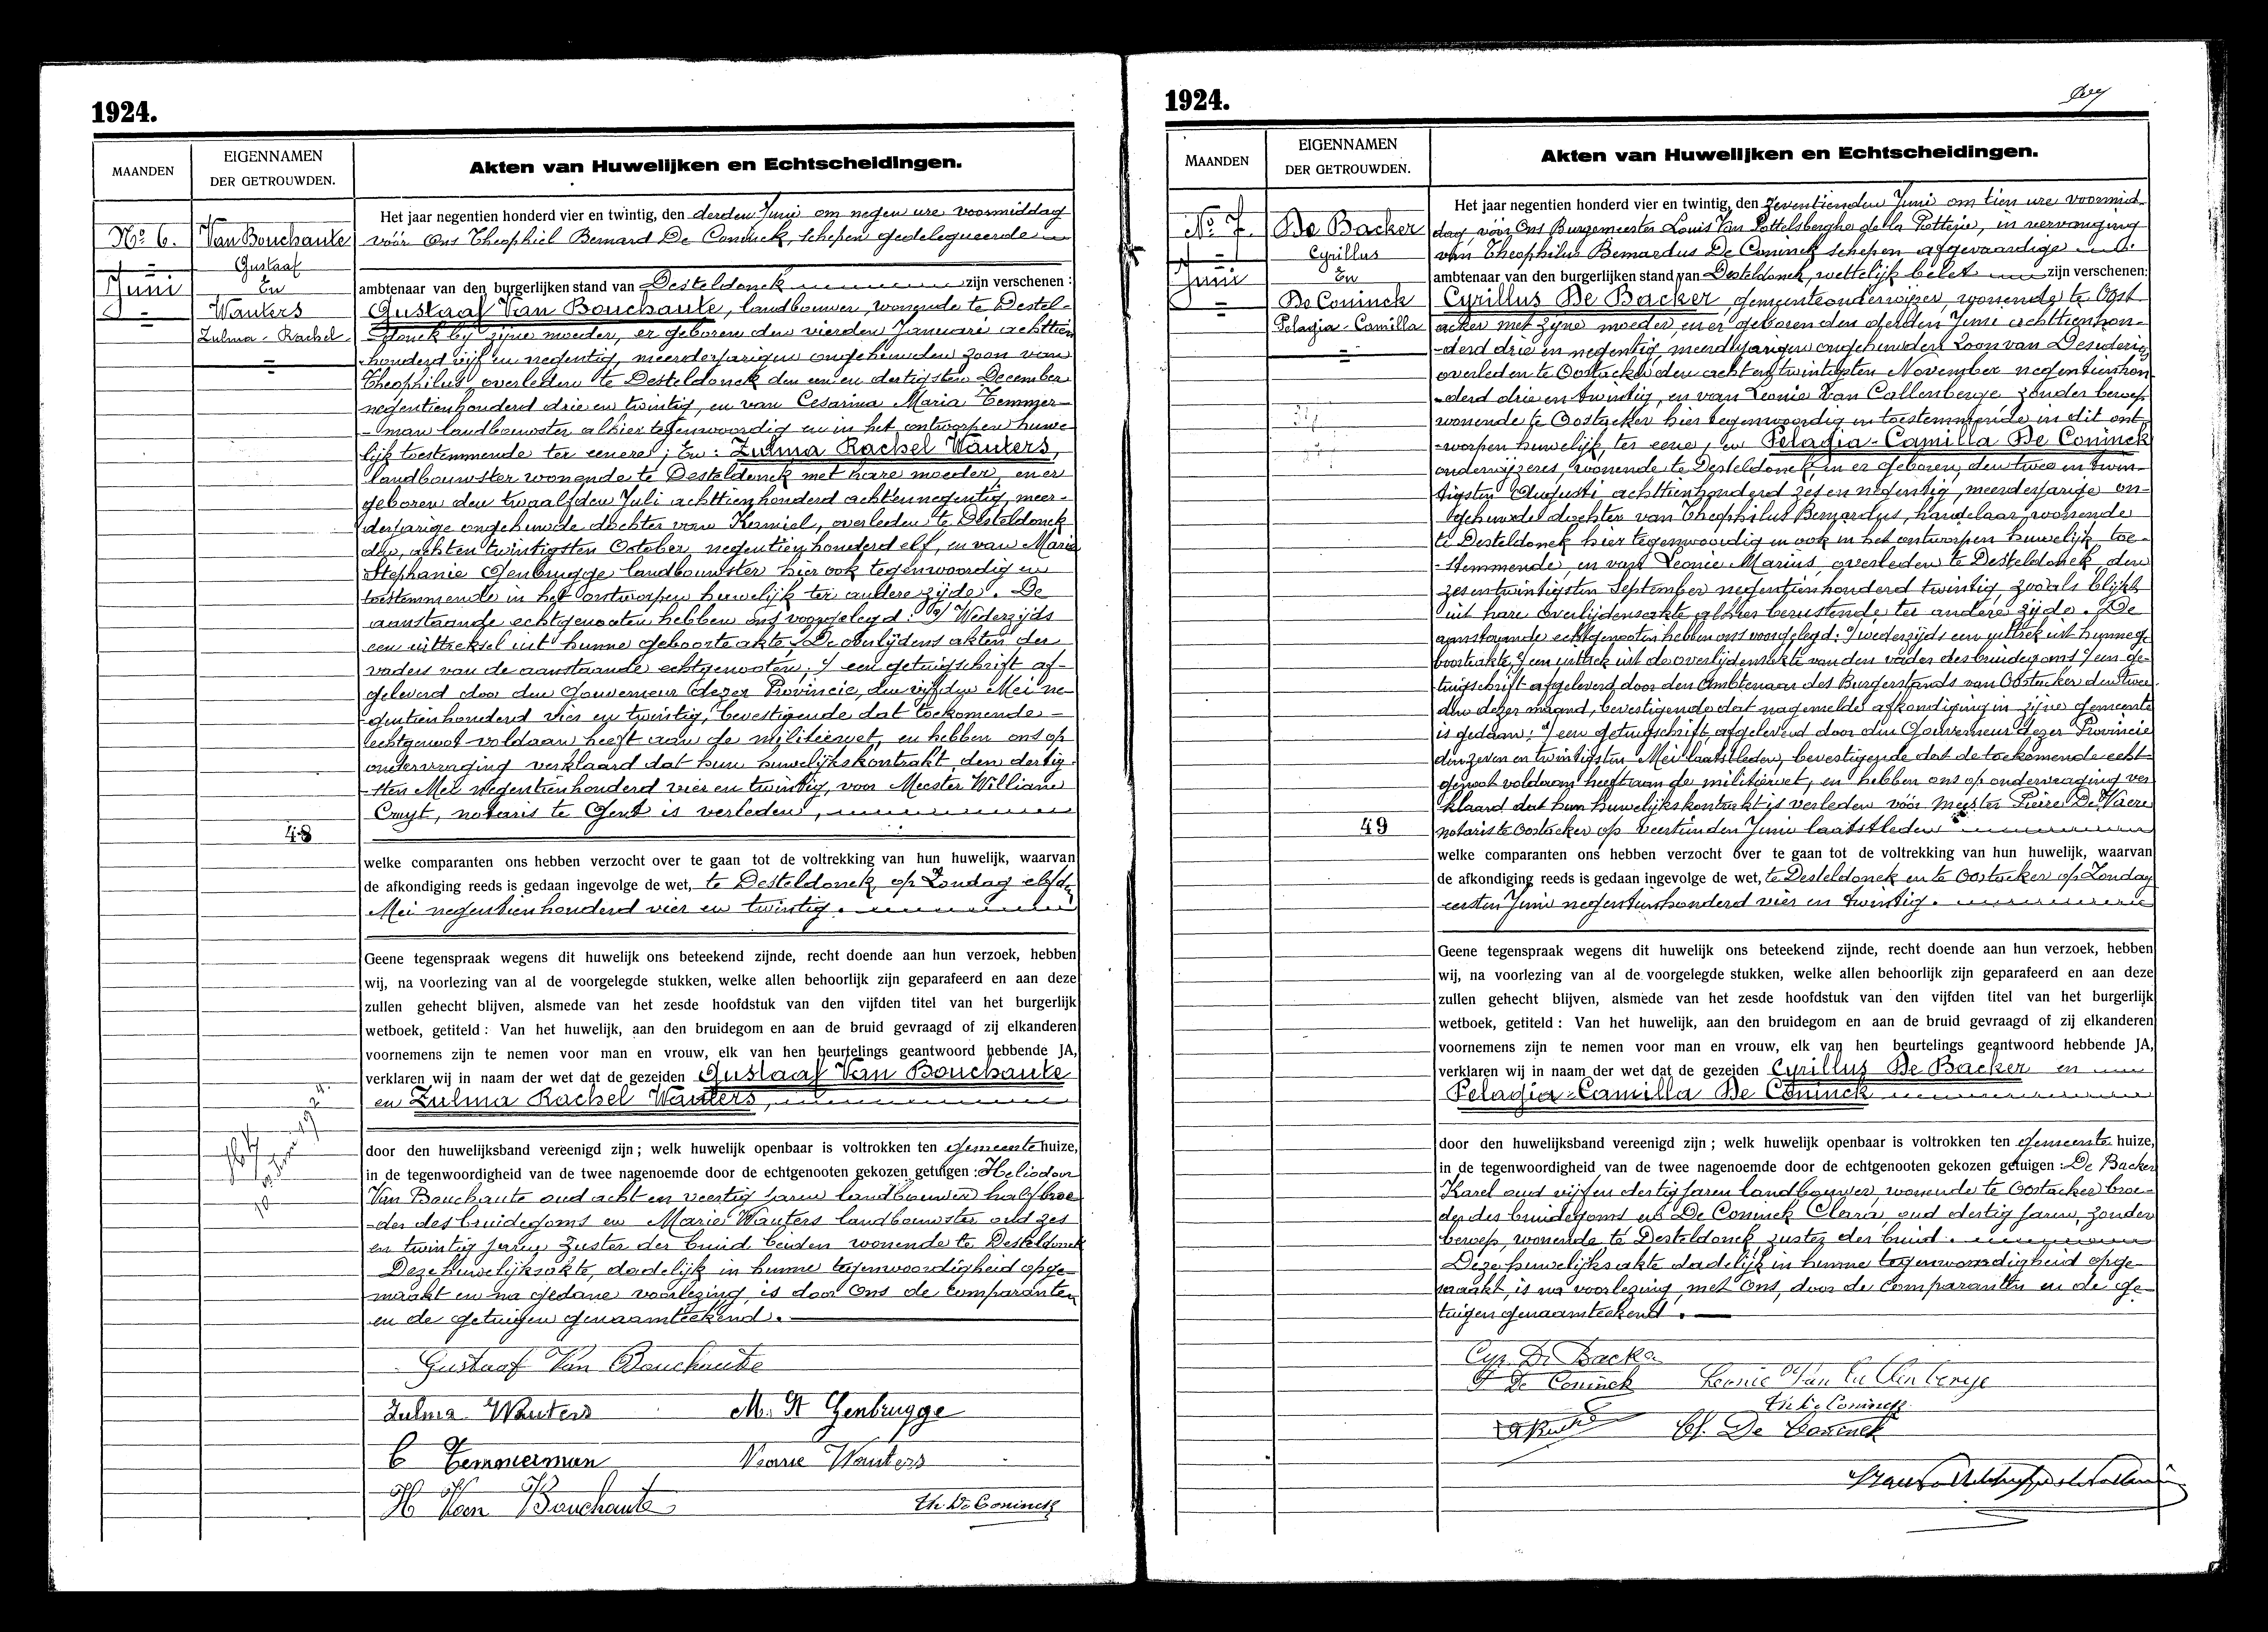 1924.
MAANDEN
EIGENNAMEN
DER GETROUWDEN.
Akten van Huwelijken en Echtscheidingen.
No 6.
Juni
Van Bouchaute
Gustaaf
En
Wauters
Zulma-Rachel
48
Het jaar negentien honderd vier en twintig, den derden Juni om negen ure voormiddag
vóór Ons Theophiel Bernard De Coninck, schepen gedelegueerde
ambtenaar van den burgerlijken stand van Desteldonck zijn verschenen:
Gustaaf Van Bouchaute, landbouwer, wonende te Destel-
donck bij zijne moeder, er geboren den vierden Januari achttien
honderd vijf en negentig, meerderjarigen ongehuwden zoon van
Theophilus, overleden te Desteldonck den een en dertigsten December
negentienhonderd drie en twintig, en van Cesarina Maria Temmer-
-man landbouwster alhier tegenwoordig en in het ontworpen huwe
lijk toestemmende ter eenere; En: Zulma Rachel Wauters,
landbouwster wonende te Desteldonck met hare moeder, en er
geboren den twaalfden Juli achttienhonderd achtennegentig, meer-
derjarige ongehuwde dochter van Kamiel, overleden te Desteldonck
den achten twintigsten October negentienhonderd elf, en van Marie
Stephanie Genbrugge landbouwster hier ook tegenwoordig en
toestemmende in het ontworpen huwelijk ter andere zijde. De
aanstaande echtgenooten hebben ons voorgelegd: a/ Wederzijds
een uittreksel uit hunne geboorteakte; De overlijdens akten der
vaders van de aanstaande echtgenooten; c/ een getuigschrift af-
geleverd door den Gouverneur dezer Provincie, den vijfden Mei ne-
gentienhonderd vier en twintig, bevestigende dat toekomende-
echtgenoot voldaan heeft aan de militiewet, en hebben ons op
ondervraging verklaard dat hun huwelijkskontrakt, den dertig-
-sten Mei negentienhonderd vier en twintig, voor Meester William
Cruyt, notaris te Gent is verleden,
welke comparanten ons hebben verzocht over te gaan tot de voltrekking van hun huwelijk, waarvan
de afkondiging reeds is gedaan ingevolge de wet, te Desteldonck, op Zondag elfden
Mei negentienhonderd vier en twintig.
Geene tegenspraak wegens dit huwelijk ons beteekend zijnde, recht doende aan hun verzoek, hebben
wij, na voorlezing van al de voorgelegde stukken, welke allen behoorlijk zijn geparafeerd en aan deze
zullen gehecht blijven, alsmede van het zesde hoofdstuk van den vijfden titel van het burgerlijk
wetboek, getiteld: Van het huwelijk, aan den bruidegom en aan de bruid gevraagd of zij elkanderen
voornemens zijn te nemen voor man en vrouw, elk van hen beurtelings geantwoord hebbende JA,
verklaren wij in naam der wet dat de gezeiden Gustaaf Van Bouchaute
en Zulma Rachel Wauters,
door den huwelijksband vereenigd zijn; welk huwelijk openbaar is voltrokken ten Gemeentehuize,
in de tegenwoordigheid van de twee nagenoemde door de echtgenooten gekozen getuigen: Heliodoor
Van Bouchaute oud acht en veertig jaren landbouwer halfbroe
-der des bruidegoms en Marie Wauters landbouwster oud zes
en twintig jaren zuster der bruid beiden wonende te Desteldonck
Deze huwelijksakte, dadelijk in hunne tegenwoordigheid opge-
maakt en na gedane voorlezing is door Ons de Comparanten
en de getuigen genaamteekend.
Gustaaf Van Bouchaute
Zulma Wauters M. St Genbrugge
C Temmerman Marie Wauters
H Van Bouchaute Th. De Coninck
1924.
MAANDEN
EIGENNAMEN
DER GETROUWDEN.
Akten van Huwelijken en Echtscheidingen.
No 7.
Juni
De Backer
Cyrillus
En
De Coninck
Pelagia-Camilla
49
Het jaar negentien honderd vier en twintig, den zeventienden Juni om tien ure voormid-
dag, vóór Ons Burgemeester Louis Van Pottelsberghe de la Potterie, in vervanging
van Theophilus Bernardus De Coninck schepen afgevaardigde
ambtenaar van den burgerlijken stand van Desteldonck, wettelijk belet zijn verschenen:
Cyrillus De Backer gemeenteonderwijzer, wonende te Oost
acker met zijne moeder, en er geboren den derden Juni achttienhon-
-derd drie en negentig meerderjarigen ongehuwden zoon van Desiderius
overleden te Oostacker den acht en twintigsten November negentienhon-
-derd drie en twintig, en van Leonie Van Callenberge zonder beroep
wonende te Oostacker hier tegenwoordig en toestemmende in dit ont-
-worpen huwelijk, ter eene; en Pelagia-Camilla De Coninck
onderwijzeres, wonende te Desteldonck, en er geboren, den twee en twin-
tigsten Augusti achttienhonderd zes en negentig, meerderjarige on-
gehuwde dochter van Theophilus Bernardus, handelaar, wonende
te Desteldonck hier tegenwoordig en ook in het ontworpen huwelijk toe-
-stemmende en van Leonie Marius, overleden te Desteldonck den
zesentwintigsten September negentienhonderd twintig, zooals blijkt
uit hare overlijdensakte alhier berustende, ter andere zijde. De
aanstaande echtgenooten hebben ons voorgelegd: a/ wederzijds een uittrek uit hunne ge-
boorteakte, b/ een uittrek uit de overlijdensakte van den vader des bruidegoms c/ een ge-
tuigschrift afgeleverd door den Ambtenaar des Burgerstands van Oostacker den twee-
den dezer maand, bevestigende dat nagemelde afkondiging in zijne gemeente
is gedaan; d/ een getuigschrift, afgeleverd door den Gouverneur dezer Provincie
den zeven en twintigsten Mei laatstleden, bevestigende dat de toekomende echt-
genoot voldaan heeft aan de militiewet, en hebben ons op ondervraging ver
klaard dat hun huwelijkskontrakt is verleden vóór Meester Pierre De Vaere
notaris te Oostacker op veertienden Juni laatstleden
welke comparanten ons hebben verzocht over te gaan tot de voltrekking van hun huwelijk, waarvan
de afkondiging reeds is gedaan ingevolge de wet, te Desteldonck en te Oostacker op Zondag
eersten Juni negentienhonderd vier en twintig.
Geene tegenspraak wegens dit huwelijk ons beteekend zijnde, recht doende aan hun verzoek, hebben
wij, na voorlezing van al de voorgelegde stukken, welke allen behoorlijk zijn geparafeerd en aan deze
zullen gehecht blijven, alsmede van het zesde hoofdstuk van den vijfden titel van het burgerlijk
wetboek, getiteld: Van het huwelijk, aan den bruidegom en aan de bruid gevraagd of zij elkanderen
voornemens zijn te nemen voor man en vrouw, elk van hen beurtelings geantwoord hebbende JA,
verklaren wij in naam der wet dat de gezeiden Cyrillus De Backer en
Pelagia-Camilla De Coninck
door den huwelijksband vereenigd zijn; welk huwelijk openbaar is voltrokken ten Gemeente huize,
in de tegenwoordigheid van de twee nagenoemde door de echtgenooten gekozen getuigen: De Backer
Karel oud vijf en dertig jaren landbouwer, wonende te Oostacker broe-
der des bruidegoms en De Coninck Clara, oud dertig jaren, zonder
beroep, wonende te Desteldonck zuster der bruid.
Deze huwelijksakte dadelijk in hunne tegenwoordigheid opge-
maakt, is na voorlezing, met Ons, door de Comparanten en de ge-
tuigen genaamteekend.
Cyr. De Backer
P De Coninck Leonie Van Callenberge
Th. De Coninck
Cl. De Coninck